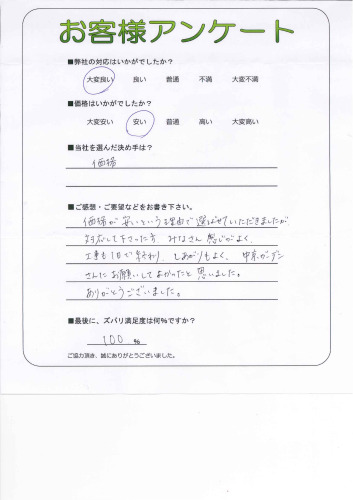 お客様アンケート
■弊社の対応はいかがでしたか？
大変良い 良い 普通 不満 大変不満
■価格はいかがでしたか？
大変安い 安い 普通 高い 大変高い
■当社を選んだ決め手は？
価格
■ご感想・ご要望などをお書き下さい。
価格が安いという理由で選ばせていただきましたが
対応して下さった方 みなさん感じがよく、
工事も1日で終わり、しあがりもよく、中京ガーデン
さんにお願いしてよかったと思いました。
ありがとうございました。
■最後に、ズバリ満足度は何%ですか？
100 %
ご協力頂き、誠にありがとうございました。